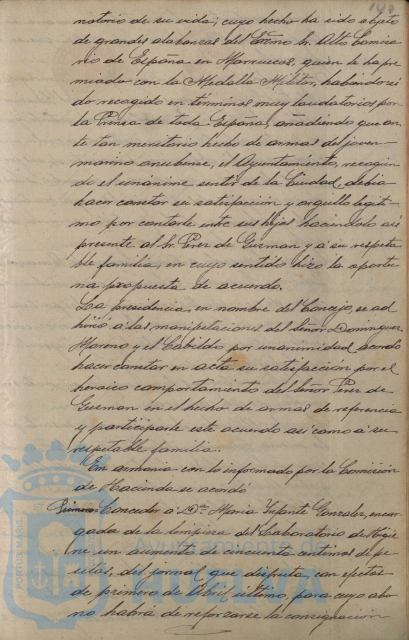 natorio de su vida; cuyo hecho ha sido objeto
de grandes alabanzas del Excmo Sr. Alto Comisa
rio de España en Marruecos, quien le ha pre
miado con la Medalla Militar, habiendo si
do recogido en términos muy laudatorios por
la Prensa de toda España, añadiendo que an
te tan meritorio hecho de armas del joven
marino onubense, el Ayuntamiento, recogien
do el unánime sentir de la Ciudad, debia
hacer constar su satisfacción y orgullo legíti
mo por contarle entre sus hijos haciendolo así
presente al Sr. Perez de Guzman y á su respeta
ble familia, en cuyo sentido hizo la oportu
na propuesta de acuerdo.
La presidencia, en nombre del Concejo, se ad
hirió a las manifestaciones del Señor Dominguez
Moreno y el Cabildo por unanimidad acordó
hacer constar en acta su satisfacción por el
heroico comportamiento del Señor Perez de
Guzman en el hecho de armas de referencia
y participarle este acuerdo así como á su
respetable familia.
En armonia con lo informado por la Comisión
de Hacienda se acordó
Primero: Conceder a Dª Maria Infante Gonzalez, encar
gada de la limpieza del Laboratorio de Higie
ne un aumento de cincuenta centimos de pe
setas, del jornal que disfruta, con efectos
de primero de Abril ultimo, para cuyo abo
no habrá de reforzarse la consignación